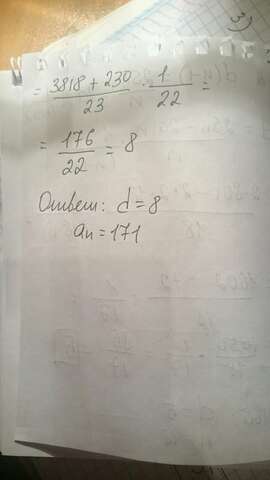 = 3818 + 230 / 23 · 1 / 22 =
= 176 / 22 = 8
Ответ: d = 8
an = 171